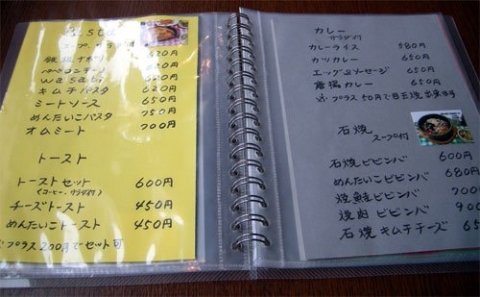 スープ、サラダ付
620円
620円
620円
キムチパスタ 620円
ミートソース 650円
めんたいこパスタ 750円
オムミート 700円
トースト
トーストセット 600円
(コーヒー、サラダ付)
チーズトースト 450円
めんたいこトースト 450円
※プラス200円でセット可
カレー
サラダ付
カレーライス 580円
カツカレー 650円
エッグ&ソーセージ 650円
唐揚カレー 650円
※プラス50円で目玉焼出来ます
石焼
スープ付
石焼ビビンバ 600円
めんたいこビビンバ 680円
焼鮭ビビンバ 700
焼肉ビビンバ 900
石焼キムチチーズ 65